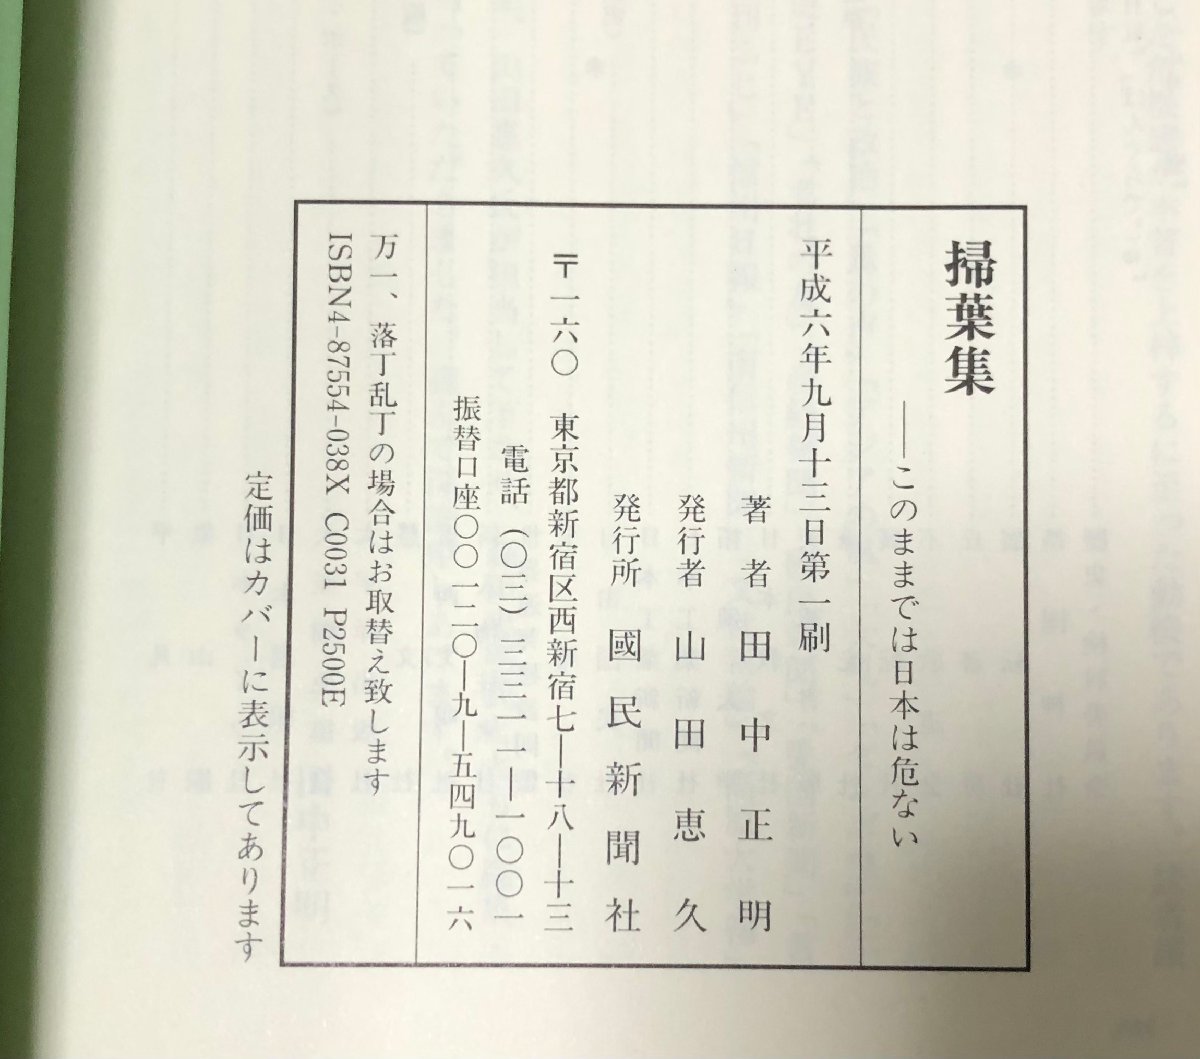 掃葉集
――このままでは日本は危ない
平成六年九月十三日第一刷
著者 田中正明
発行者 山田恵久
発行所 國民新聞社
〒一六〇 東京都新宿区西新宿七―十八―十三
電話(〇三)三三一一―一〇〇一
振替口座〇〇一二〇―九―五四九〇一六
万一、落丁乱丁の場合はお取替え致します
ISBN4-87554-038X C0031 P2500E
定価はカバーに表示してあります